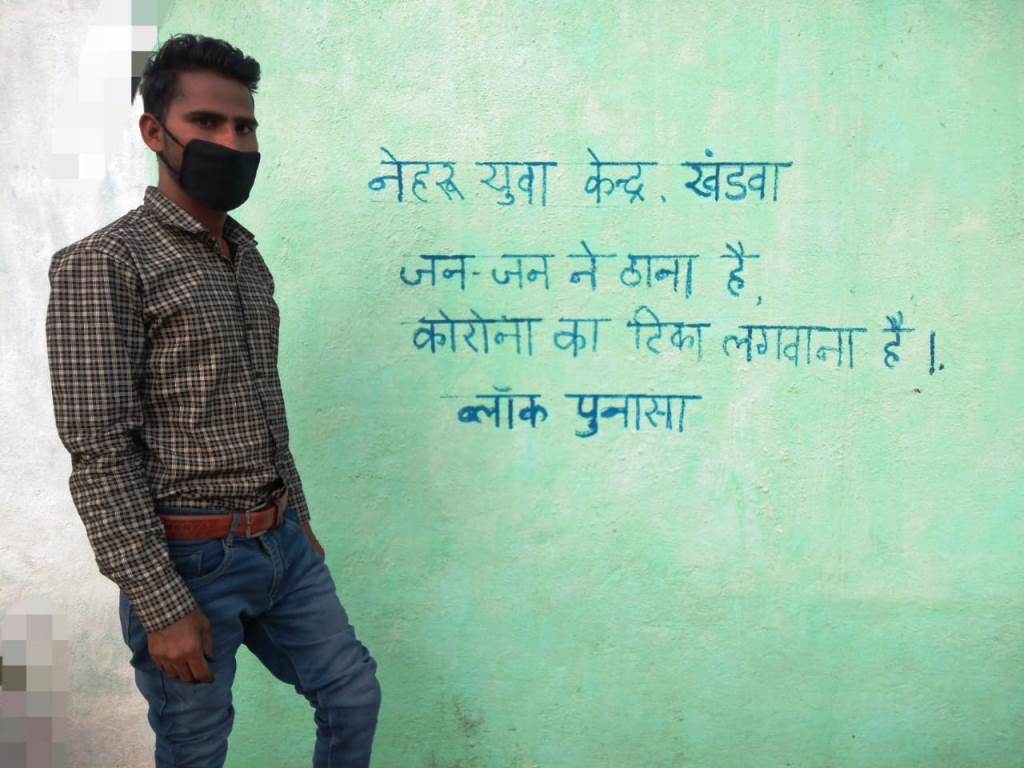 नेहरू युवा केन्द्र. खंडवा
जन-जन ने ठाना है,
कोरोना का टिका लगवाना है ।.
ब्लॉक पुनासा